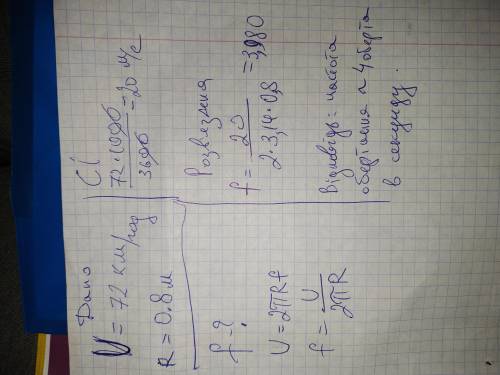 Дано
V = 72 км/год
R = 0.8 м
f - ?
U = 2πRf
f = U / 2πR
СІ
72·1000 / 3600 = 20 м/с
Розвязання
f = 20 / 2·3,14·0,8 = 3,980
Відповідь: частота
обертання ≈ 4 оберта
в секунду.